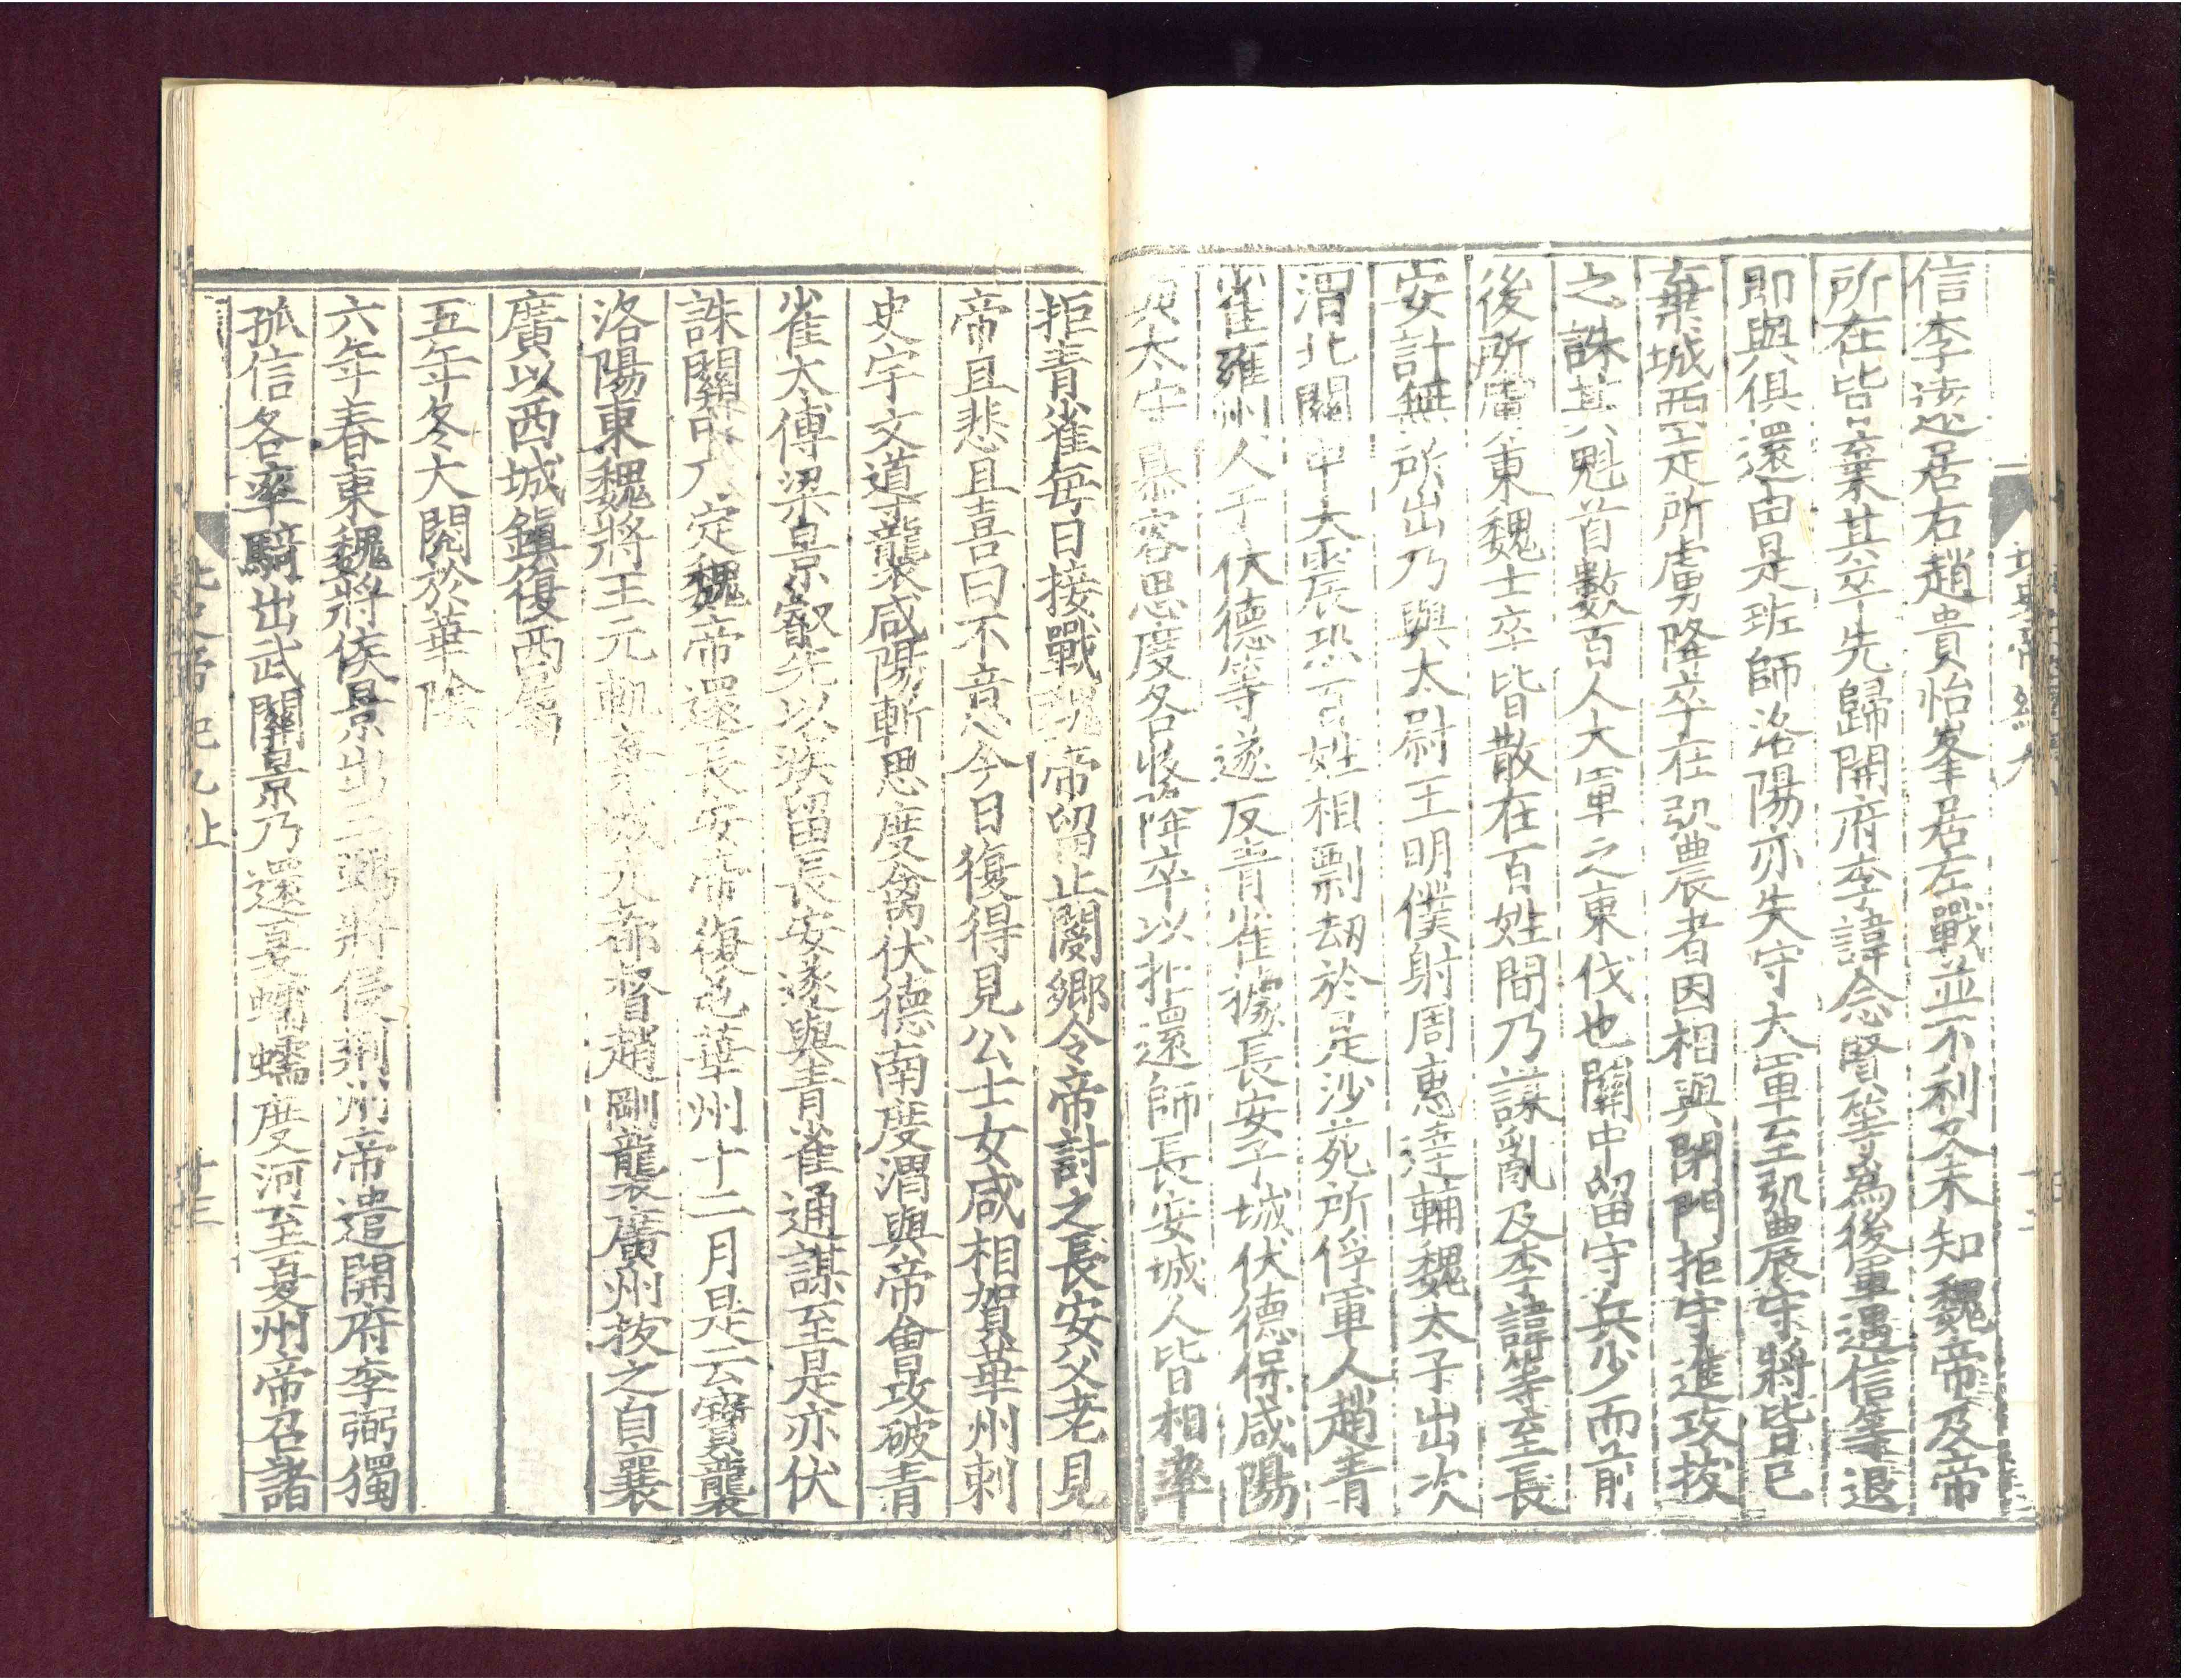 信李遠居右趙貴怡峯居左戰並不利又未知魏帝及帝
所在皆棄其卒先歸開府李諱念賢等爲後軍遇信等退
即與俱還由是班師洛陽亦失守大軍至弘農守將皆已
棄城西走所虜降卒在弘農者因相與閉門拒守進攻拔
之誅其魁首數百人大軍之東伐也關中留守兵少而前
後所虜東魏士卒皆散在百姓間乃謀亂及李諱等至長
安計無所出乃與太尉王明僕射周惠達輔魏太子出次
渭北關中大震恐百姓相剽劫於是沙苑所俘軍人趙青
雀雍州人于伏德等遂反青雀據長安子城伏德保咸陽
與太守慕容思慶各收降卒以拒還師長安城人皆相率
拒青雀每日接戰魏帝留止閿鄉令帝討之長安父老見
帝且悲且喜曰不意今日復得見公士女咸相賀華州刺
史宇文導襲咸陽斬思慶禽伏德南度渭與帝會攻破青
雀太傅梁景叡先以疾留長安遂與青雀通謀至是亦伏
誅關中乃定魏帝還長安帝復屯華州十二月是云寶襲
洛陽東魏將王元軌棄城走都督趙剛襲廣州拔之自襄
廣以西城鎮復西屬
五年冬大閱於華陰
六年春東魏將侯景出三鵶將侵荊州帝遣開府李弼獨
孤信各率騎出武關景乃還夏蠕蠕度河至夏州帝召諸
北史帝紀九上
十三